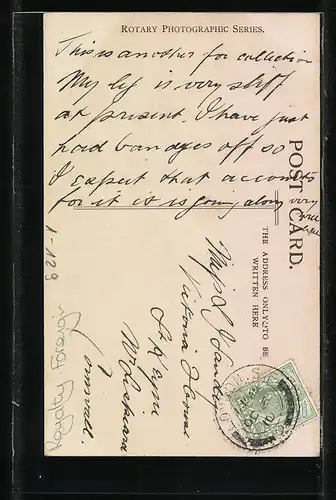 ROTARY PHOTOGRAPHIC SERIES.
This is another for collection
My leg is very stiff
at present. I have just
had bandages off so
I expect that accounts
for it it is going along very
well
POST CARD.
THE ADDRESS ONLY TO BE
WRITTEN HERE
Miss L J
Victoria House
St
Cornwall.
1-128
Royalty Foreign